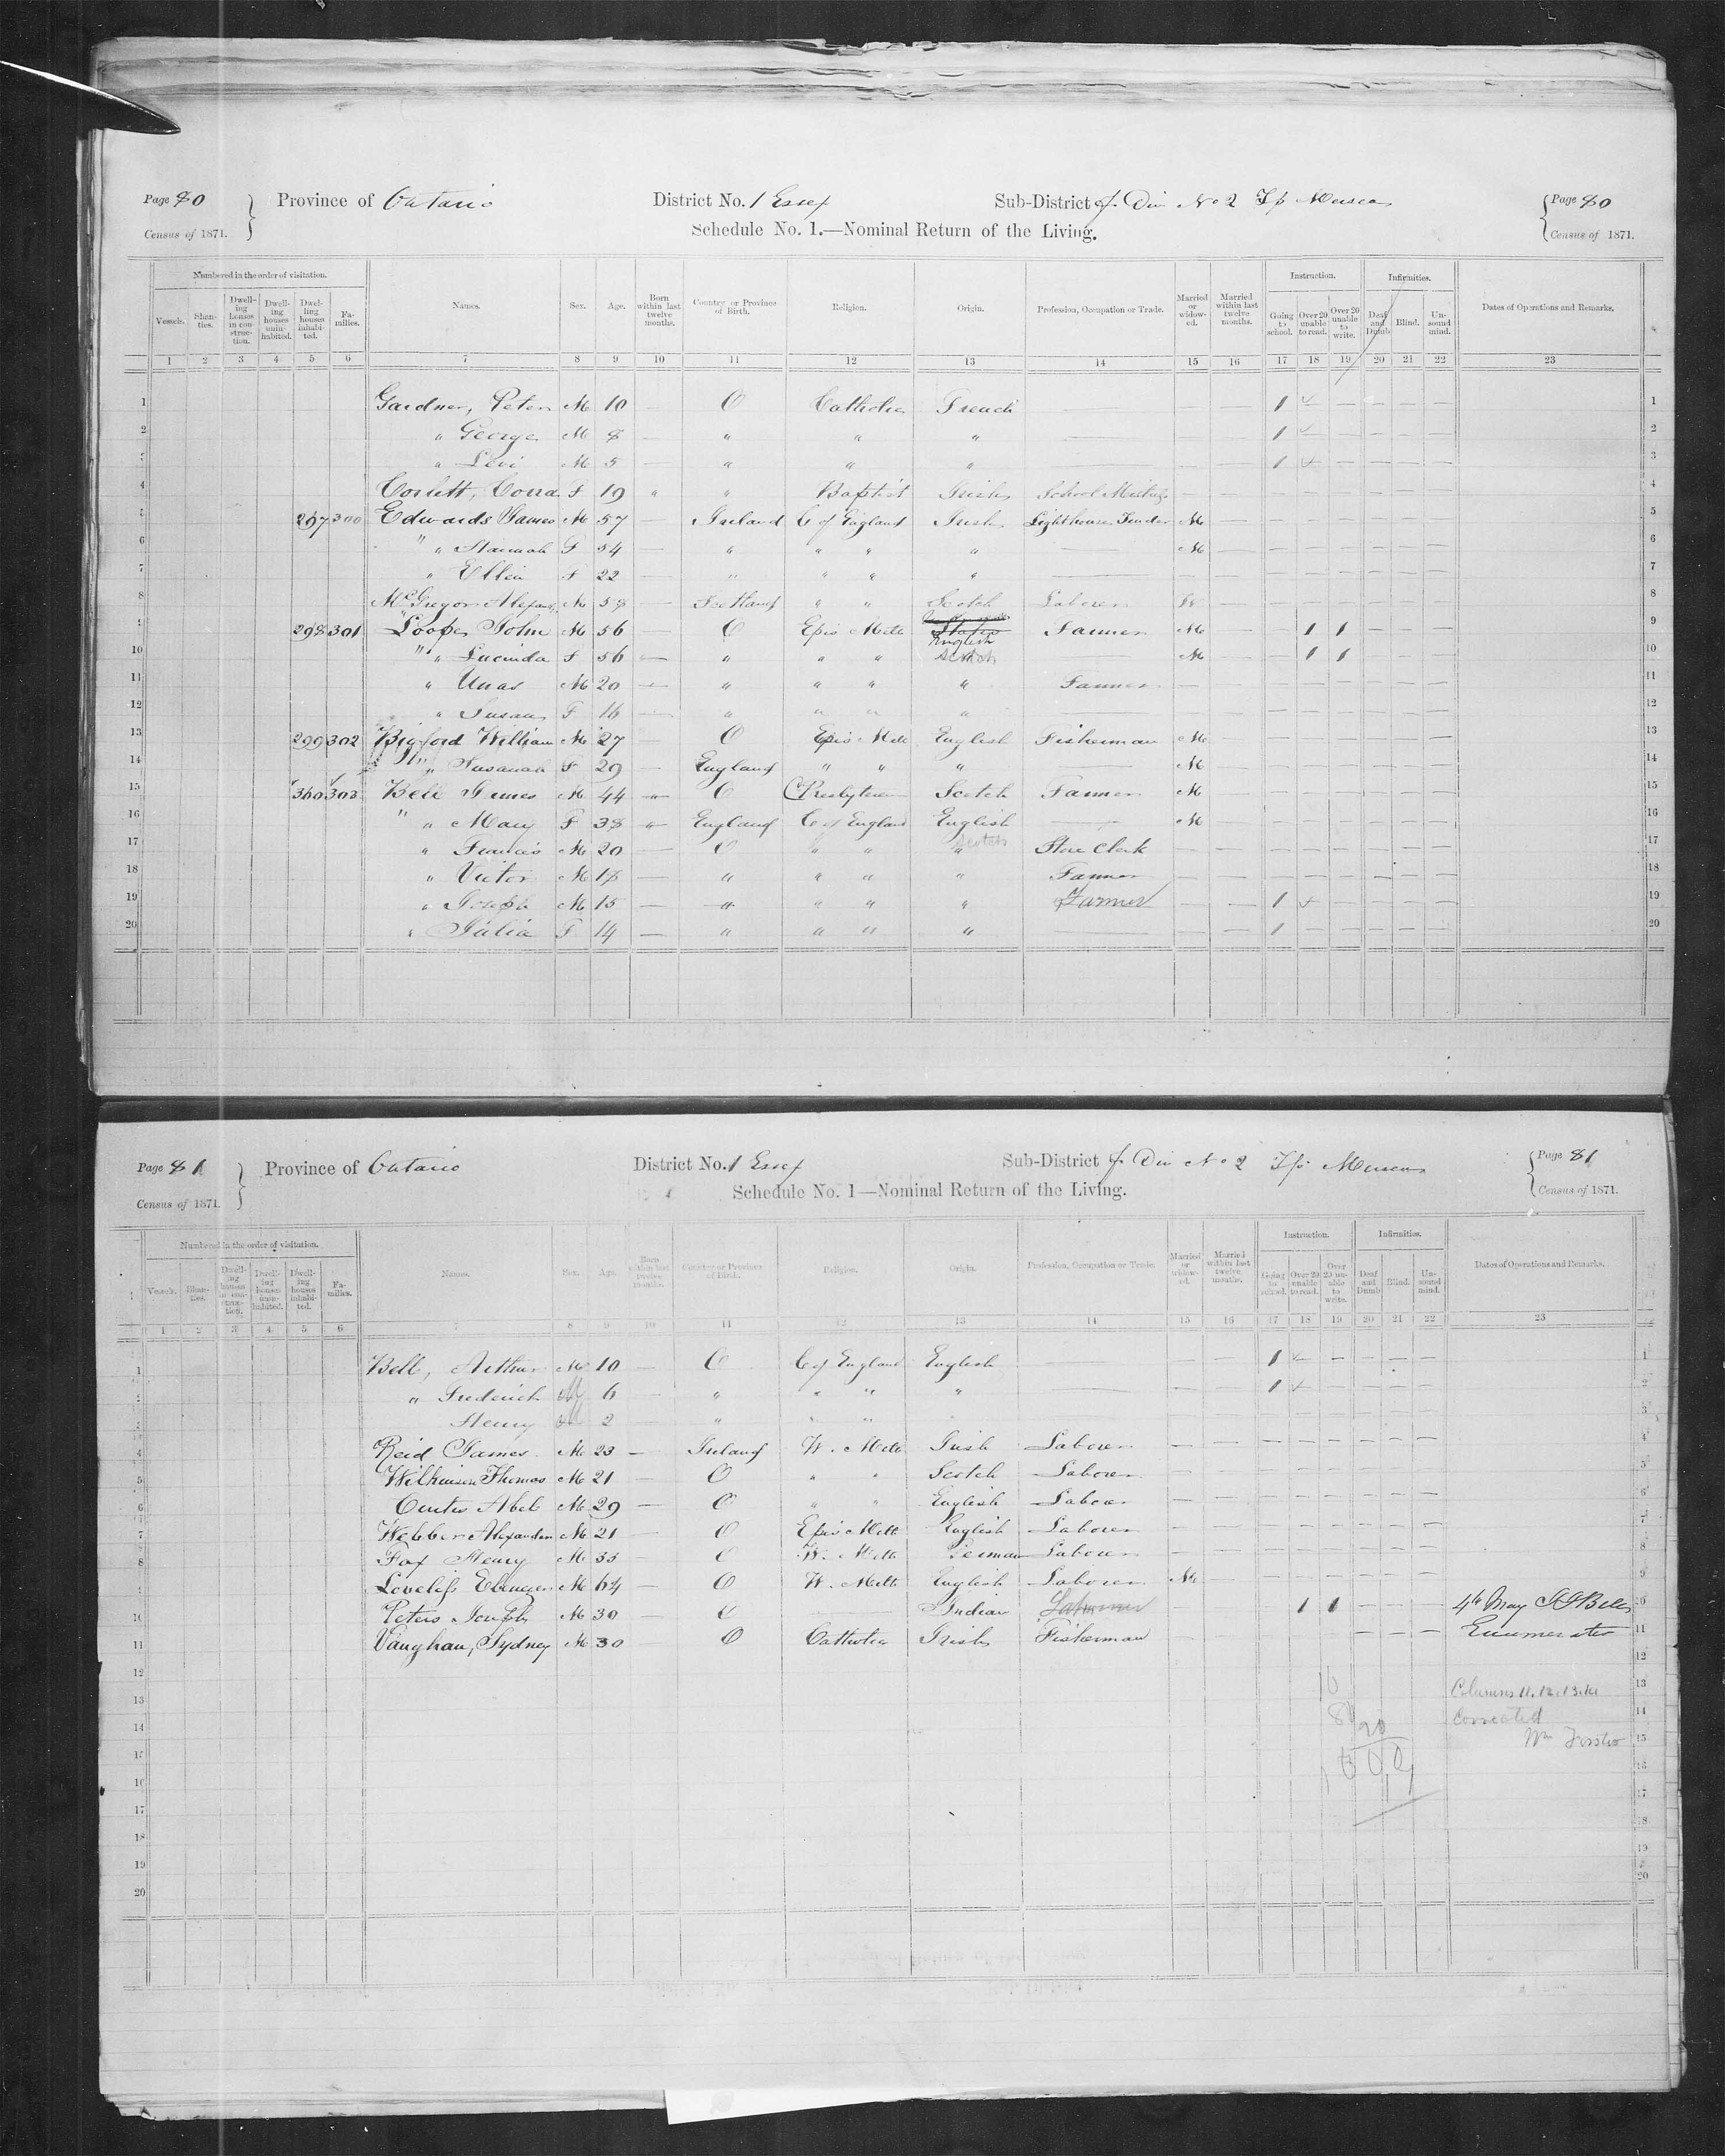 Page 80 Province of Ontario District No. 1 Essex Sub-District f Div No 2 Tp Mersea Page 80
Census of 1871. Schedule No. 1.—Nominal Return of the Living. Census of 1871.
Numbered in the order of visitation. Instruction. Infirmities.
Vessels. Shanties. Dwelling houses in construction. Dwelling houses uninhabited. Dwelling houses inhabited. Families. Names. Sex. Age. Born within last twelve months. Country or Province of Birth. Religion. Origin. Profession, Occupation or Trade. Married or widowed. Married within last twelve months. Going to school. Over 20 unable to read. Over 20 unable to write. Deaf and Dumb Blind. Unsound mind. Dates of Operations and Remarks.
1 2 3 4 5 6 7 8 9 10 11 12 13 14 15 16 17 18 19 20 21 22 23
1 Gardner, Peter M 10 — O Catholic French — — — 1 — — — — — 1
2 " George M 8 — " " " — — — 1 — — — — — 2
3 " Levi M 5 — " " " — — — 1 — — — — — 3
4 F 19 " " Baptist Irish School — — — — — — — — 4
5 297 300 Edwards James M 57 — Ireland C of England Irish Lighthouse Tender M — — — — — — — 5
6 " " Hannah F 54 — " " " " — M — — — — — — — 6
7 " Ellen F 22 — " " " " — — — — — — — — — 7
8 McGregor M 58 — Scotland " " Scotch Laborer W — — — — — — — 8
9 298 301 Loop John M 56 — O Epis Meth English Farmer M — — 1 1 — — — 9
10 " " Lucinda F 56 — " " " Scotch — M — — 1 1 — — — 10
11 " M 20 — " " " " Farmer — — — — — — — — 11
12 " Susan F 16 — " " " " — — — — — — — — — 12
13 299 302 William M 27 — O Epis Meth English Fisherman M — — — — — — — 13
14 " " Susanah F 29 — England " " " — M — — — — — — — 14
15 300 303 Bell James M 44 — O Presbyterian Scotch Farmer M — — — — — — — 15
16 " " Mary F 38 " England C of England English — M — — — — — — — 16
17 " Francis M 20 — O " " " Scotch Store Clerk — — — — — — — — 17
18 " Victor M 18 — " " " " Farmer — — — — — — — — 18
19 " Joseph M 15 — " " " " Farmer — — 1 — — — — — 19
20 " Julia F 14 — " " " " — — — 1 — — — — — 20
Page 81 Province of Ontario District No. 1 Essex Sub-District f Div No 2 Tp Mersea Page 81
Census of 1871. Schedule No. 1—Nominal Return of the Living. Census of 1871.
Numbered in the order of visitation. Instruction. Infirmities.
Vessels. Shanties. Dwelling houses in construction. Dwelling houses uninhabited. Dwelling houses inhabited. Families. Names. Sex. Age. Born within last twelve months. Country or Province of Birth. Religion. Origin. Profession, Occupation or Trade. Married or widowed. Married within last twelve months. Going to school. Over 20 unable to read. Over 20 unable to write. Deaf and Dumb Blind. Unsound mind. Dates of Operations and Remarks.
1 2 3 4 5 6 7 8 9 10 11 12 13 14 15 16 17 18 19 20 21 22 23
1 Bell, Arthur M 10 — O C of England English — — — 1 — — — — — 1
2 " Frederick M 6 — " " " " — — — 1 — — — — 2
3 Henry M 2 — " " " — — — — — — — — 3
4 Reid James M 23 — Ireland W. Meth Irish Laborer — — — — — — — — 4
5 Wilkinson Thomas M 21 — O " " Scotch Laborer — — — — — — — — 5
6 Curtis Abel M 29 — O " " English Labor — — — — — — — — 6
7 Webber Alexander M 21 — O Epis Meth English Laborer — — — — — — — — 7
8 Fox Henry M 35 — O W. Meth German Laborer — — — — — — — — 8
9 Ebenezer M 64 — O W. Meth English Laborer M — — — — — — — 9
10 Peters Joseph M 30 — O Indian — — 1 1 — — — 4th May Bell 10
11 Vaughan, Sydney M 30 — O Catholic Irish Fisherman — — — — — — — Enumerator 11
12 12
13 10 Columns 11.12.13.14 13
14 80 20 Corrected 14
15 Wm 15
16 16
17 17
18 18
19 19
20 20